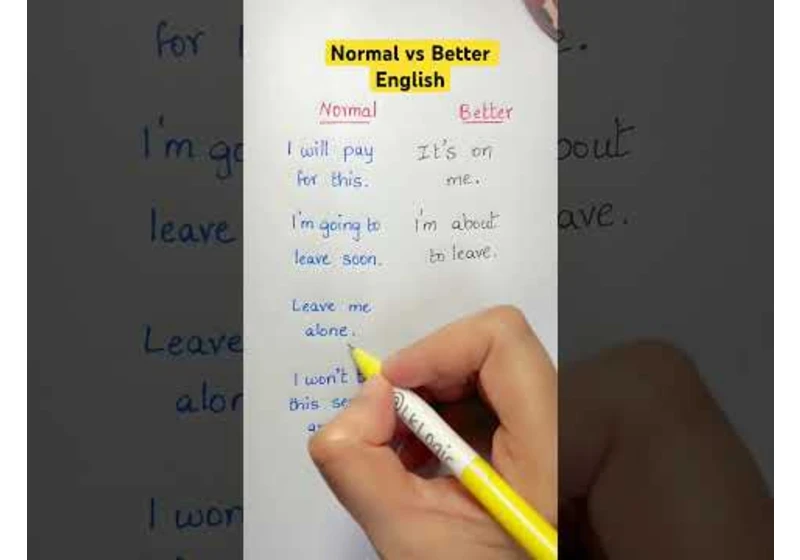 Normal vs Better
English
Normal Better
I will pay It's on
for this. me.
I'm going to I'm about
leave soon. to leave.
Leave me
alone.
I won't
this
@LKLogic